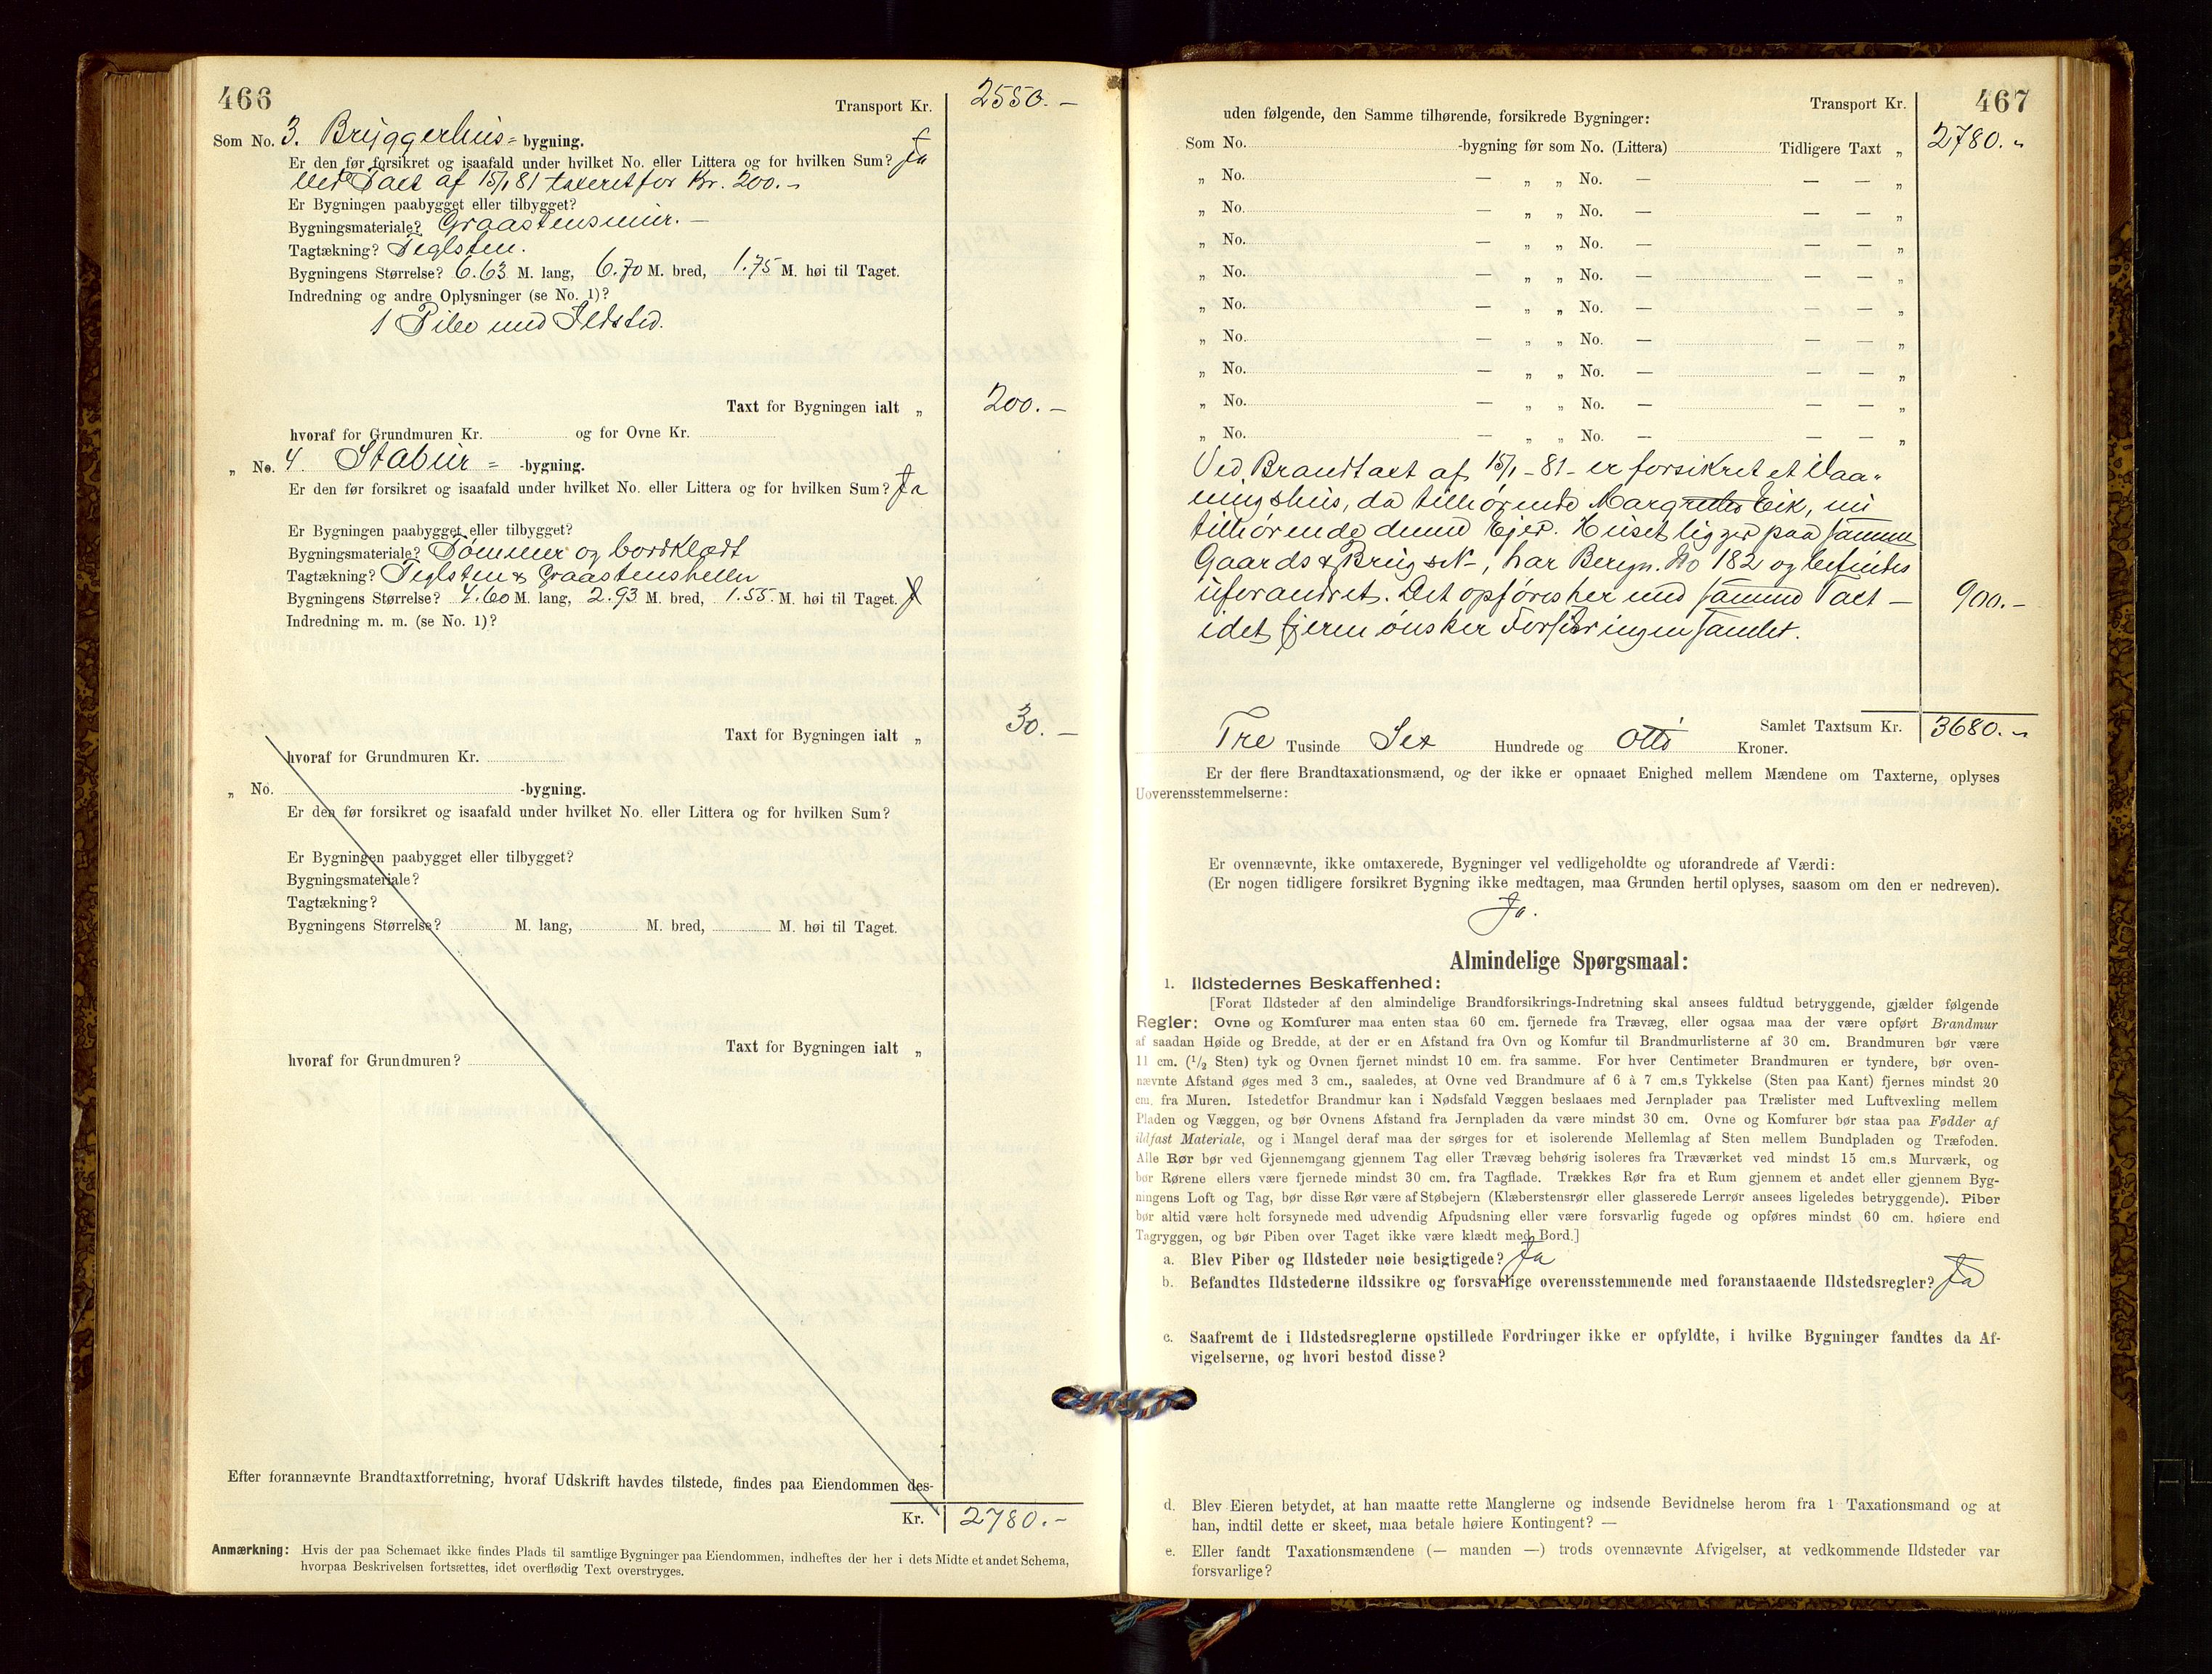 466
Transport Kr. 2550.-
Som No. 3. Bryggerhus= bygning.
Er den før forsikret og isaafald under hvilket No. eller Littera og for hvilken Sum? Ja
Ved Taxt af 15/1 81 taxeret for Kr. 200.-
Er Bygningen paabygget eller tilbygget?
Bygningsmateriale? Graastensmur. -
Tagtækning? Teglsten.
Bygningens Størrelse? 6.63 M. lang, 6.70 M. bred, 1.75 M. høi til Taget.
Indredning og andre Oplysninger (se No. 1)?
1 Pibe med Ildsted.
Taxt for Bygningen ialt „ 200.-
hvoraf for Grundmuren Kr. og for Ovne Kr.
„ No. 4. Stabur= -bygning.
Er den før forsikret og isaafald under hvilket No. eller Littera og for hvilken Sum? Ja
Er Bygningen paabygget eller tilbygget?
Bygningsmateriale? Tømmer og bordklædt
Tagtækning? Teglsten & Graastensheller
Bygningens Størrelse? 4.60 M. lang, 2.93 M. bred, 1.55 M. høi til Taget.
Indredning m. m. (se No. 1)?
Taxt for Bygningen ialt „ 30.-
hvoraf for Grundmuren Kr.
„ No. -bygning.
Er den før forsikret og isaafald under hvilket No. eller Littera og for hvilken Sum?
Er Bygningen paabygget eller tilbygget?
Bygningsmateriale?
Tagtækning?
Bygningens Størrelse? M. lang, M. bred, M. høi til Taget.
Taxt for Bygningen ialt „
hvoraf for Grundmuren?
Efter forannævnte Brandtaxtforretning, hvoraf Udskrift havdes tilstede, findes paa Eiendommen des-
Kr. 2780.-
Anmærkning: Hvis der paa Schemaet ikke findes Plads til samtlige Bygninger paa Eiendommen, indheftes der her i dets Midte et andet Schema,
hvorpaa Beskrivelsen fortsættes, idet overflødig Text overstryges.
467
Transport Kr.
uden følgende, den Samme tilhørende, forsikrede Bygninger:
Som No. -bygning før som No. (Littera) Tidligere Taxt „ 2780.-
„ No. — „ „ No. — — — „
„ No. — „ „ No. — — — „
„ No. — „ „ No. — — — „
„ No. — „ „ No. — — — „
„ No. — „ „ No. — — — „
„ No. — „ „ No. — — — „
„ No. — „ „ No. — — — „
„ No. — „ „ No. — — — „
„ No. — „ „ No. — — — „
Ved Brandtaxt af 15/1-81- er forsikret et Vaa-
ningshus, da tilhørende Margrethe Eik, nu
tilhørende denne Ejer. Huset ligger paa samme
Gaards & Brugs N-, har Beregn. No 182 og befindes
uforandret. Det opføres her med samme Taxt - 900.-
idet Ejeren ønsker Forsikringen samlet.
Samlet Taxtsum Kr. 3680.-
Tre Tusinde Sex Hundrede og Otti Kroner.
Er der flere Brandtaxationsmænd, og der ikke er opnaaet Enighed mellem Mændene om Taxterne, oplyses
Uoverensstemmelserne:
Er ovennævnte, ikke omtaxerede, Bygninger vel vedligeholdte og uforandrede af Værdi:
(Er nogen tidligere forsikret Bygning ikke medtagen, maa Grunden hertil oplyses, saasom om den er nedreven).
Ja.
Almindelige Spørgsmaal:
1. Ildstedernes Beskaffenhed:
[Forat Ildsteder af den almindelige Brandforsikrings-Indretning skal ansees fuldtud betryggende, gjælder følgende
Regler: Ovne og Komfurer maa enten staa 60 cm. fjernede fra Trævæg, eller ogsaa maa der være opført Brandmur
af saadan Høide og Bredde, at der er en Afstand fra Ovn og Komfur til Brandmurlisterne af 30 cm. Brandmuren bør være
11 cm. (1/2 Sten) tyk og Ovnen fjernet mindst 10 cm. fra samme. For hver Centimeter Brandmuren er tyndere, bør oven-
nævnte Afstand øges med 3 cm., saaledes, at Ovne ved Brandmure af 6 à 7 cm.s Tykkelse (Sten paa Kant) fjernes mindst 20
cm. fra Muren. Istedetfor Brandmur kan i Nødsfald Væggen beslaaes med Jernplader paa Trælister med Luftvexling mellem
Pladen og Væggen, og bør Ovnens Afstand fra Jernpladen da være mindst 30 cm. Ovne og Komfurer bør staa paa Fødder af
ildfast Materiale, og i Mangel deraf maa der sørges for et isolerende Mellemlag af Sten mellem Bundpladen og Træfoden.
Alle Rør bør ved Gjennemgang gjennem Tag eller Trævæg behørig isoleres fra Træværket ved mindst 15 cm.s Murværk, og
bør Rørene ellers være fjernede mindst 30 cm. fra Tagflade. Trækkes Rør fra et Rum gjennem et andet eller gjennem Byg-
ningens Loft og Tag, bør disse Rør være af Støbejern (Klæberstensrør eller glasserede Lerrør ansees ligeledes betryggende). Piber
bør altid være helt forsynede med udvendig Afpudsning eller være forsvarlig fugede og opføres mindst 60 cm. høiere end
Tagryggen, og bør Piben over Taget ikke være klædt med Bord.]
a. Blev Piber og Ildsteder nøie besigtigede? Ja
b. Befandtes Ildstederne ildssikre og forsvarlige overensstemmende med foranstaaende Ildstedsregler? Ja
c. Saafremt de i Ildstedsreglerne opstillede Fordringer ikke er opfyldte, i hvilke Bygninger fandtes da Af-
vigelserne, og hvori bestod disse?
d. Blev Eieren betydet, at han maatte rette Manglerne og indsende Bevidnelse herom fra 1 Taxationsmand og at
han, indtil dette er skeet, maa betale høiere Kontingent? —
e. Eller fandt Taxationsmændene (— manden —) trods ovennævnte Afvigelser, at vedkommende Ildsteder var
forsvarlige?